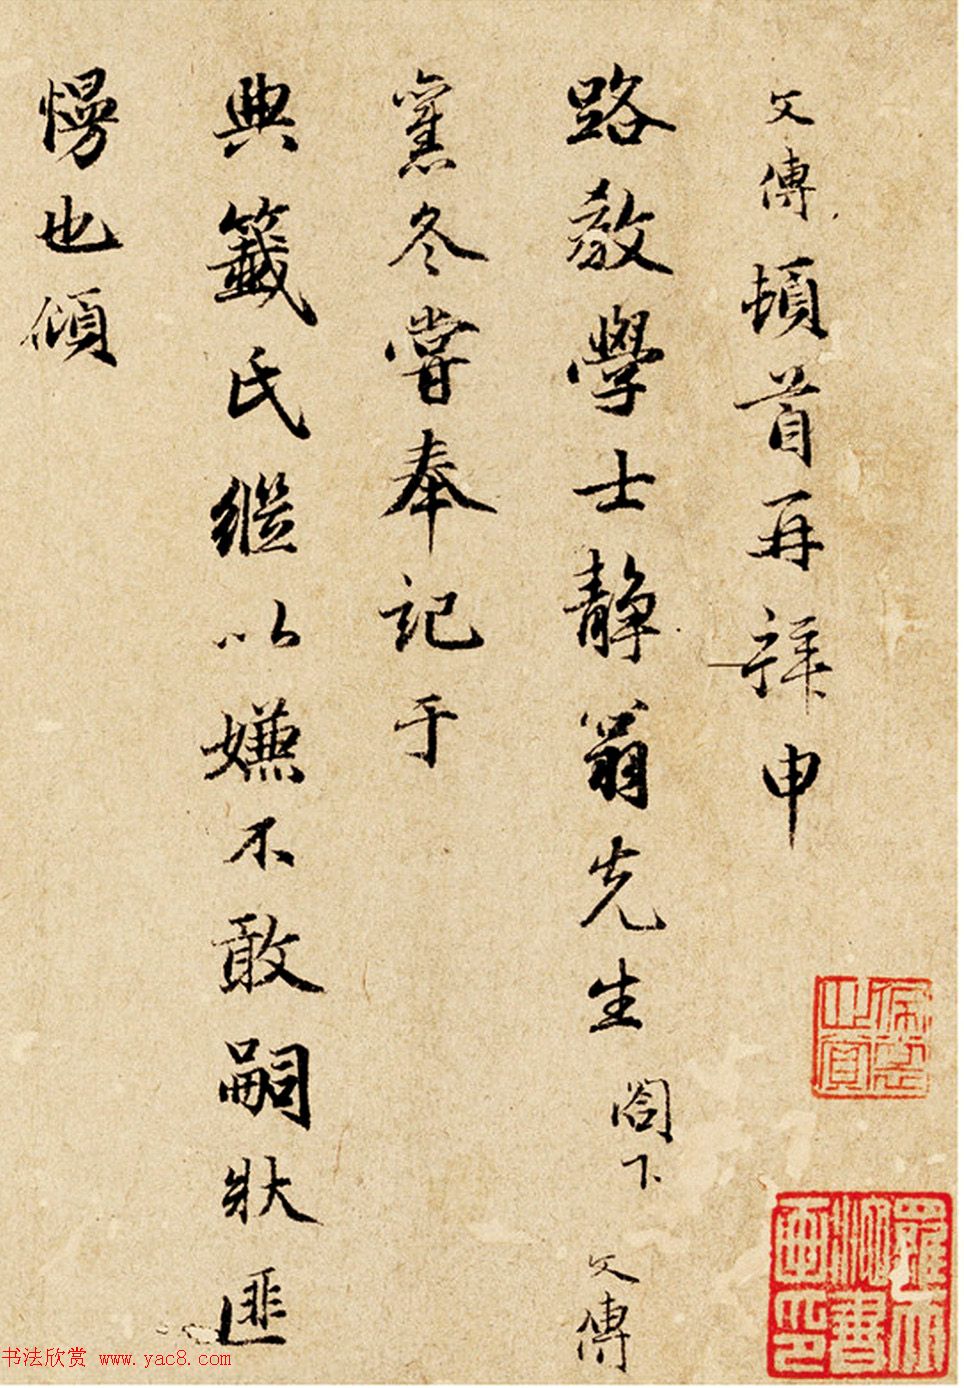 文傅頓首再拜申
路教學士靜翁先生閣下 文傅
舊冬嘗奉記于
典籖氏繼以嫌不敢嗣狀匪
慢也傾
書法欣赏 www.yac8.com